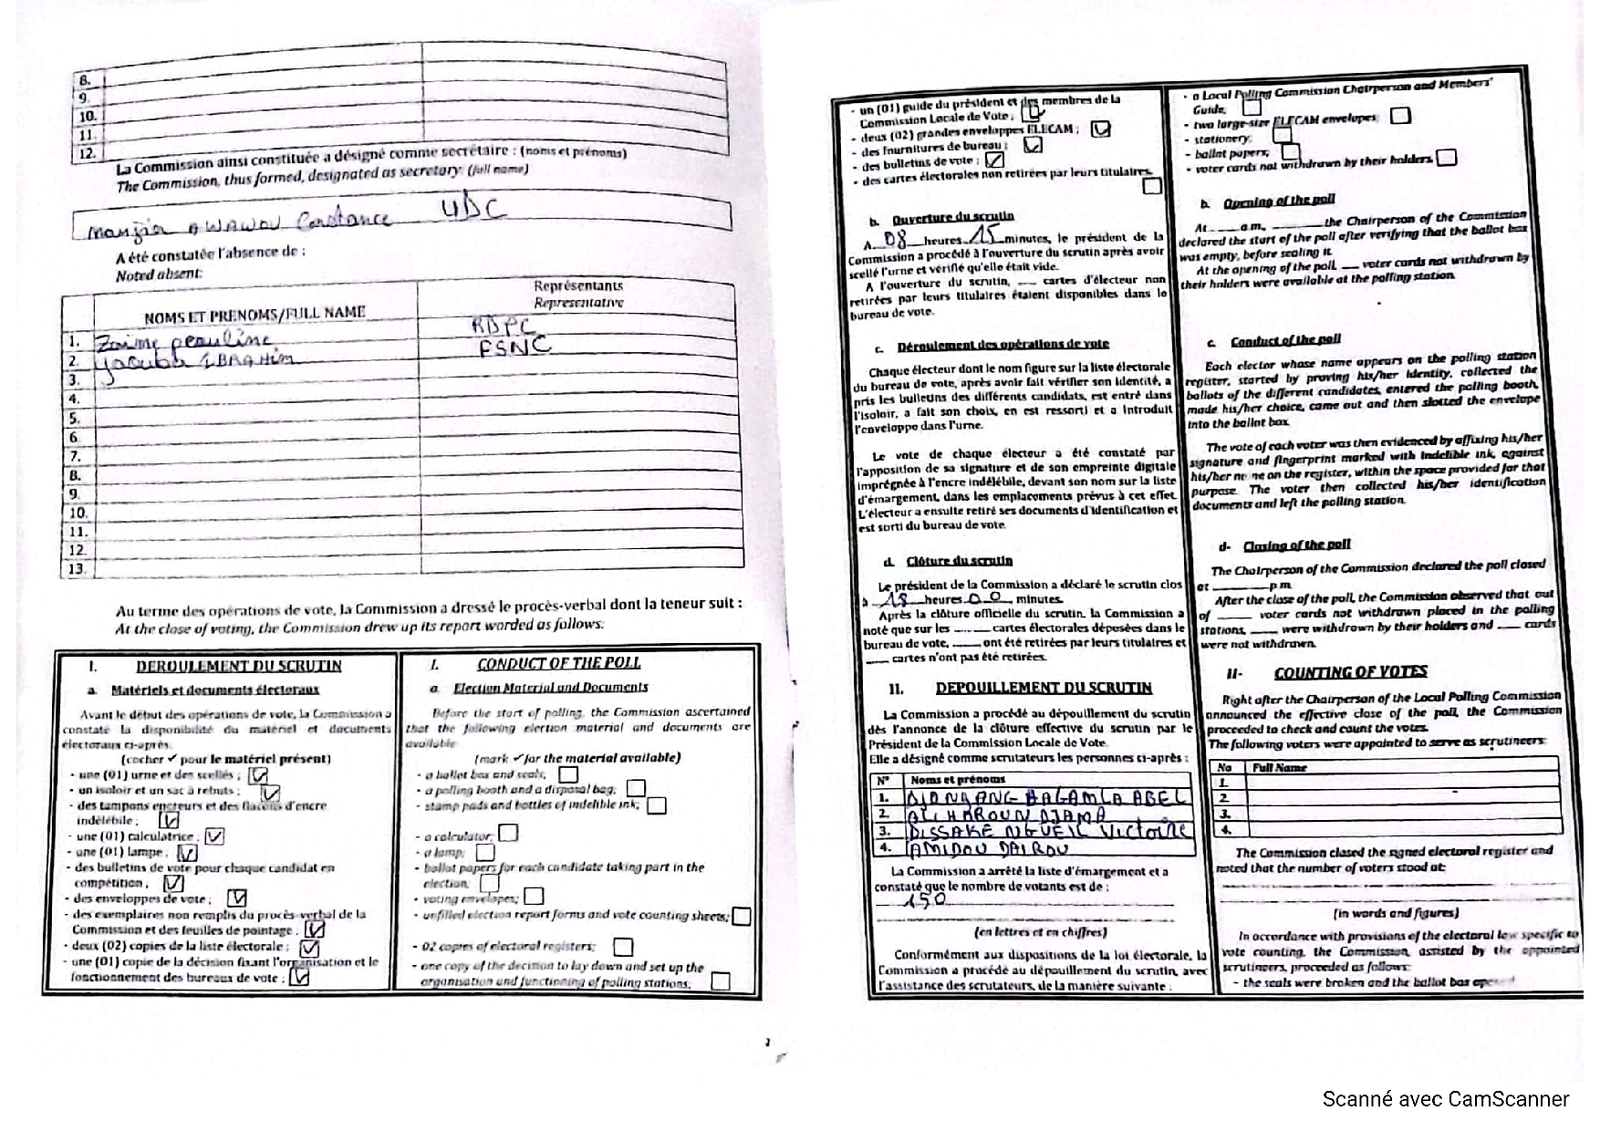 8.
9.
10.
11.
12.
La Commission ainsi constituée a désigné comme secrétaire : (noms et prénoms)
The Commission, thus formed, designated as secretary: (full name)
Constance UDC
A été constatée l'absence de :
Noted absent:
NOMS ET PRENOMS/FULL NAME
Représentants
Representative
1. Zaime peauline RDPC
2. Yaouba IBRAHIM FSNC
3.
4.
5.
6.
7.
8.
9.
10.
11.
12.
13.
Au terme des opérations de vote, la Commission a dressé le procès-verbal dont la teneur suit :
At the close of voting, the Commission drew up its report worded as follows:
I. DEROULEMENT DU SCRUTIN
a. Matériels et documents électoraux
Avant le début des opérations de vote, la Commission a
constaté la disponibilité du matériel et documents
électoraux ci-après.
(cocher ✓ pour le matériel présent)
- une (01) urne et des scellés ; ☑
- un isoloir et un sac à rebuts ; ☑
- des tampons encreurs et des flacons d'encre
indélébile ; ☑
- une (01) calculatrice ; ☑
- une (01) lampe ; ☑
- des bulletins de vote pour chaque candidat en
compétition ; ☑
- des enveloppes de vote ; ☑
- des exemplaires non remplis du procès-verbal de la
Commission et des feuilles de pointage ; ☑
- deux (02) copies de la liste électorale ; ☑
- une (01) copie de la décision fixant l'organisation et le
fonctionnement des bureaux de vote ; ☑
I. CONDUCT OF THE POLL
a Election Material and Documents
Before the start of polling, the Commission ascertained
that the following election material and documents are
available:
(mark ✓ for the material available)
- a ballot box and seals; ☐
- a polling booth and a disposal bag; ☐
- stamp pads and bottles of indelible ink; ☐
- a calculator; ☐
- a lamp; ☐
- ballot papers for each candidate taking part in the
election; ☐
- voting envelopes; ☐
- unfilled election report forms and vote counting sheets; ☐
- 02 copies of electoral registers; ☐
- one copy of the decision to lay down and set up the
organisation and functioning of polling stations; ☐
- un (01) guide du président et des membres de la
Commission Locale de Vote ; ☑
- deux (02) grandes enveloppes ELECAM ; ☑
- des fournitures de bureau ; ☑
- des bulletins de vote ; ☑
- des cartes électorales non retirées par leurs titulaires.
☐
b. Ouverture du scrutin
A 08 heures 15 minutes, le président de la
Commission a procédé à l'ouverture du scrutin après avoir
scellé l'urne et vérifié qu'elle était vide.
A l'ouverture du scrutin, ___ cartes d'électeur non
retirées par leurs titulaires étaient disponibles dans le
bureau de vote.
c. Déroulement des opérations de vote
Chaque électeur dont le nom figure sur la liste électorale
du bureau de vote, après avoir fait vérifier son identité, a
pris les bulletins des différents candidats, est entré dans
l'isoloir, a fait son choix, en est ressorti et a introduit
l'enveloppe dans l'urne.
Le vote de chaque électeur a été constaté par
l'apposition de sa signature et de son empreinte digitale
imprégnée à l'encre indélébile, devant son nom sur la liste
d'émargement, dans les emplacements prévus à cet effet.
L'électeur a ensuite retiré ses documents d'identification et
est sorti du bureau de vote.
d. Clôture du scrutin
Le président de la Commission a déclaré le scrutin clos
à 18 heures 00 minutes.
Après la clôture officielle du scrutin, la Commission a
noté que sur les ___ cartes électorales déposées dans le
bureau de vote, ___ ont été retirées par leurs titulaires et
___ cartes n'ont pas été retirées.
II. DEPOUILLEMENT DU SCRUTIN
La Commission a procédé au dépouillement du scrutin
dès l'annonce de la clôture effective du scrutin par le
Président de la Commission Locale de Vote.
Elle a désigné comme scrutateurs les personnes ci-après :
N° Noms et prénoms
1. DJONGANG BAGAMLA ABEL
2. ALI HAROUN DJAMA
3. DISSAKE NGUEIL Victoire
4. AMIDOU DAIROU
La Commission a arrêté la liste d'émargement et a
constaté que le nombre de votants est de :
150
(en lettres et en chiffres)
Conformément aux dispositions de la loi électorale, la
Commission a procédé au dépouillement du scrutin, avec
l'assistance des scrutateurs, de la manière suivante :
- a Local Polling Commission Chairperson and Members'
Guide; ☐
- two large-size ELECAM envelopes; ☐
- stationery; ☐
- ballot papers; ☐
- voter cards not withdrawn by their holders ☐
b. Opening of the poll
At ___ a.m, ___ the Chairperson of the Commission
declared the start of the poll after verifying that the ballot box
was empty, before sealing it.
At the opening of the poll, ___ voter cards not withdrawn by
their holders were available at the polling station.
c. Conduct of the poll
Each elector whose name appears on the polling station
register, started by proving his/her identity, collected the
ballots of the different candidates, entered the polling booth,
made his/her choice, came out and then slotted the envelope
into the ballot box.
The vote of each voter was then evidenced by affixing his/her
signature and fingerprint marked with indelible ink, against
his/her name on the register, within the space provided for that
purpose. The voter then collected his/her identification
documents and left the polling station.
d- Closing of the poll
The Chairperson of the Commission declared the poll closed
at ___ p.m.
After the close of the poll, the Commission observed that out
of ___ voter cards not withdrawn placed in the polling
stations, ___ were withdrawn by their holders and ___ cards
were not withdrawn.
II- COUNTING OF VOTES
Right after the Chairperson of the Local Polling Commission
announced the effective close of the poll, the Commission
proceeded to check and count the votes.
The following voters were appointed to serve as scrutineers:
No Full Name
1.
2.
3.
4.
The Commission closed the signed electoral register and
noted that the number of voters stood at:
(in words and figures)
In accordance with provisions of the electoral law specific to
vote counting, the Commission, assisted by the appointed
scrutineers, proceeded as follows:
- the seals were broken and the ballot box opened
Scanné avec CamScanner